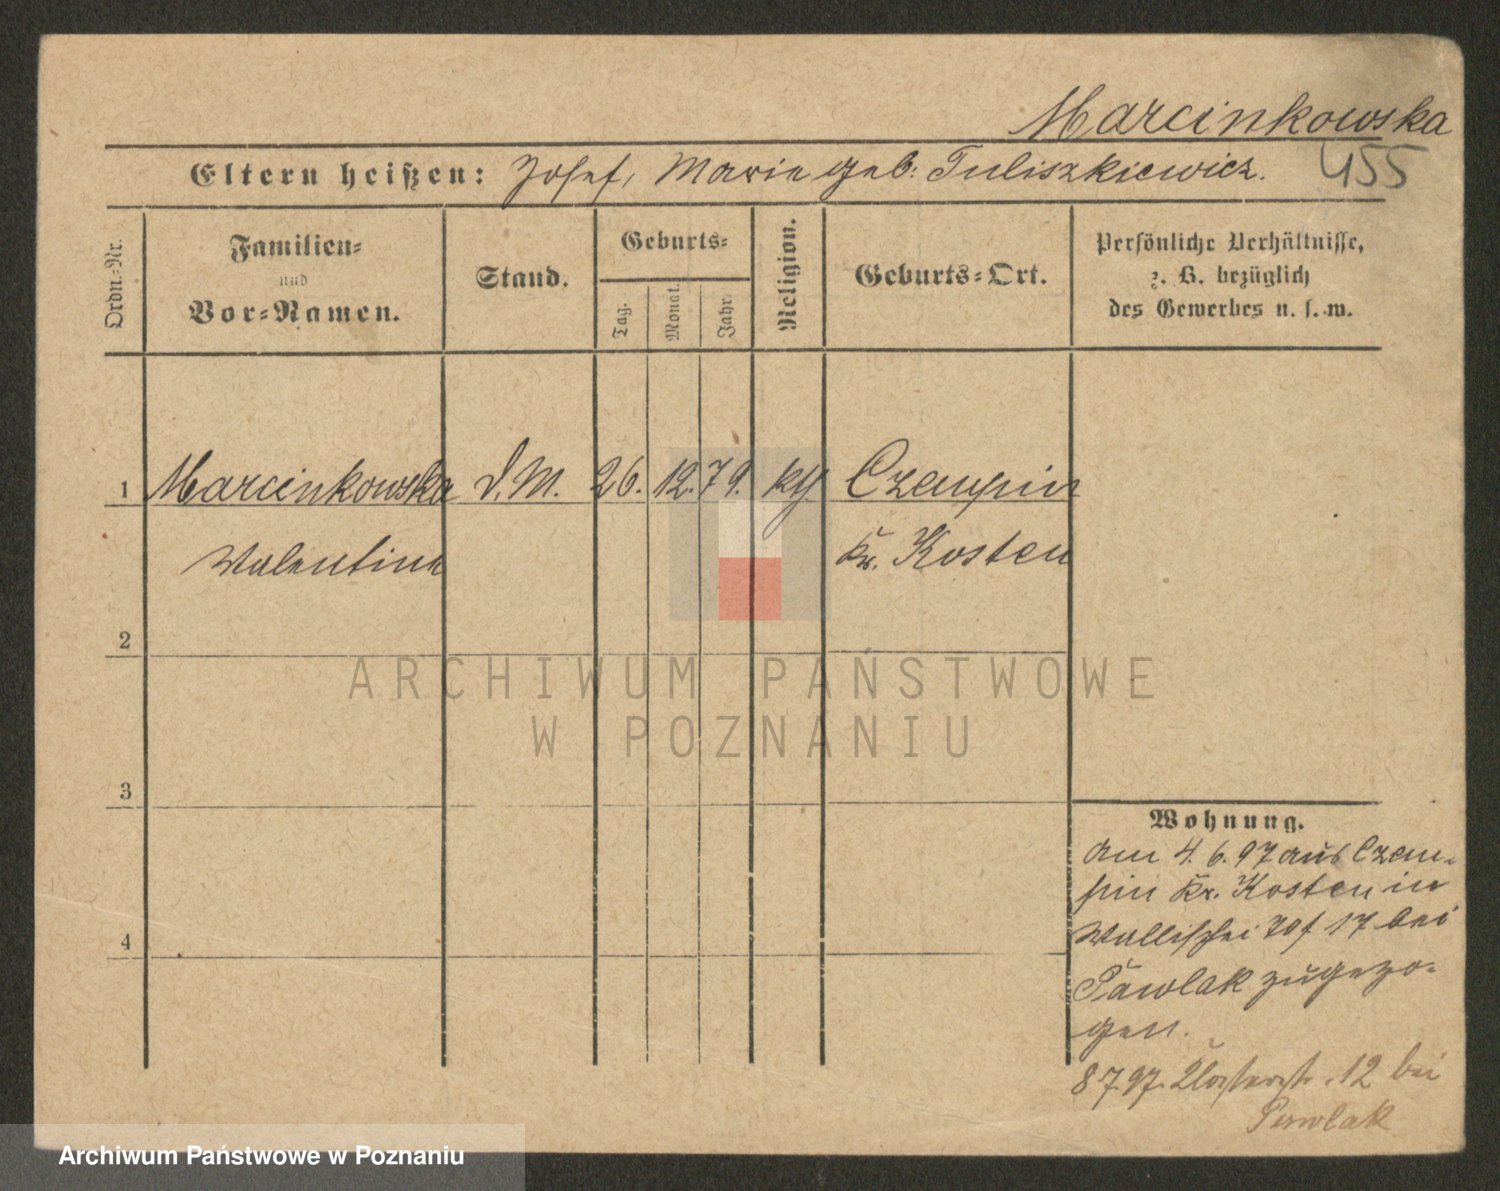 Marcinkowska
Eltern heißen: Josef, Marie geb. Tuliszkiewicz.
455
Ordn.-Nr.
Familien-
und
Vor-Namen.
Stand.
Geburts-
Tag.
Monat.
Jahr.
Religion.
Geburts-Ort.
Persönliche Verhältnisse,
z. B. bezüglich
des Gewerbes u. s. w.
1 Marcinkowska D. M. 26. 12. 79. kth. Czempin
Valentine Kr. Kosten
2
3
4
Wohnung.
am 4. 6. 97 aus Czem-
pin Kr. Kosten in
Wallischei 17 bei
Pawlak zugezo-
gen.
8 7. 97. Klosterstr. 12 bei
Pawlak
ARCHIWUM PAŃSTWOWE
W POZNANIU
Archiwum Państwowe w Poznaniu